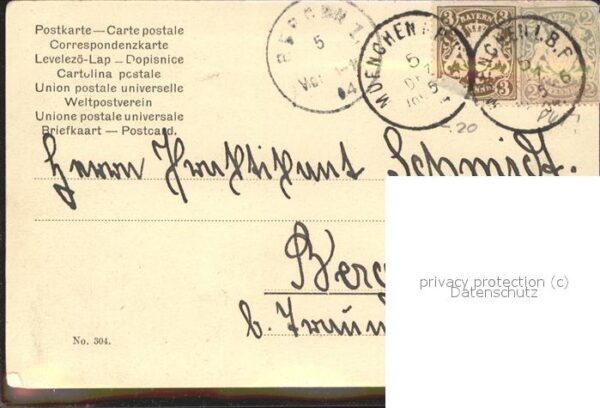 Postkarte — Carte postale
Correspondenzkarte
Levelező-Lap — Dopisnice
Cartolina postale
Union postale universelle
Weltpostverein
Unione postale universale
Briefkaart — Postcard.
5
04
MUENCHEN I.B.F.
5
BAYERN
3 3
3 PFENNIG 3
5 6
2
20
Herrn Schmidt.
Berg
b. Traun
No. 304.
privacy protection (c)
Datenschutz